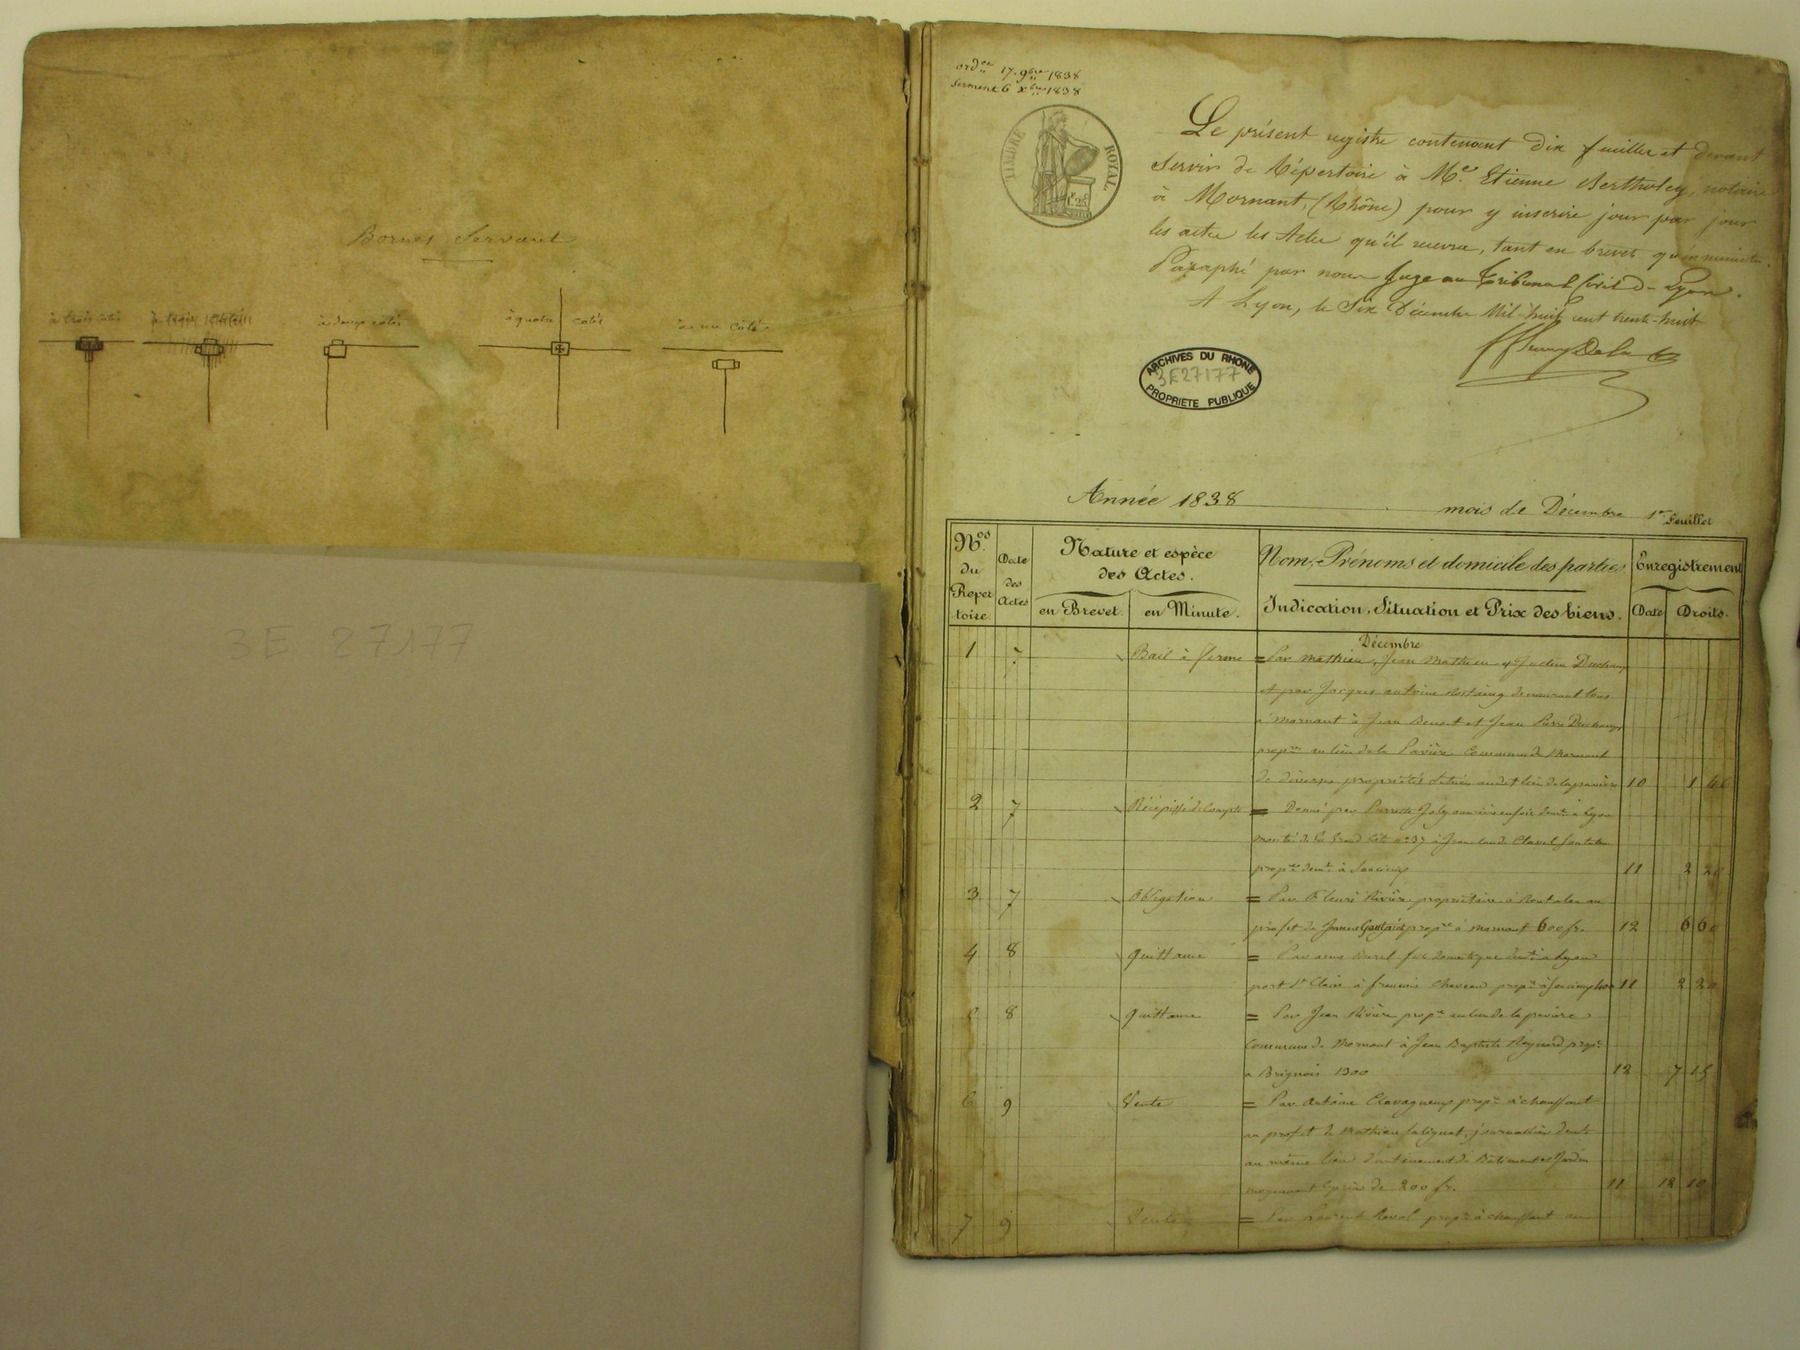 Bornes Servant
à trois cotés
à trois
à deux cotés
à quatre cotés
à un côté
3E 27177
ord.ce 17. 9bre 1838
serment 6 xbre 1838
TIMBRE ROYAL
Le présent registre contenant dix feuillets et devant
servir de Répertoire à Me. Etienne Bertholey, notaire
à Mornant, (Rhône) pour y inscrire jour par jour
les actes les Actes qu'il recevra, tant en brevet qu'en minute.
Paraphé par nous Juge au Tribunal Civil de Lyon.
A Lyon, le Six Décembre Mil-huit cent trente-huit
ARCHIVES DU RHONE
3E27177
PROPRIETE PUBLIQUE
Année 1838 mois de Décembre 1er Feuillet
Nos. du Repertoire
Date des Actes
Nature et espèce des Actes.
en Brevet. en Minute.
Nom, Prénoms et domicile des parties.
Indication, Situation et Prix des biens.
Enregistrement
Date Droits.
Décembre
1 7 Bail à ferme = Par Mathieu, Jean Mathieu
et par Jacques antoine demeurant tous
à Mornant à Jean Benoit et Jean Pierre
propre au lieu de la Pavière Commune de Mornant
de diverses propriétés 10 1
2 7 Récépissé de Compte = Donné par Pierrette Joly ouvrière en soie demt. à Lyon
montée de la Grand Côte no 37 à Jean Claude Clavel
propre demt. à 11 2 20
3 7 Obligation = Par Fleuri Rivière propriétaire à Rontalon au
profit de propre à Mornant 600 fr. 12 6 60
4 8 Quittance = Par domestique demt. à Lyon
port St Clair à françois propre 11 2 20
5 8 Quittance = Par Jean Rivière propre au lieu de la pavière
Commune de Mornant à Jean Baptiste Raynard propre
à Brignais 1300 12 7 15
6 9 Vente = Par Antoine propre à chaussant
au profit de Mathieu journalier demt.
au même lieu d'un tènement de Bâtiment et Jardin
moyennant le prix de 200 fr. 11 12 10
7 9 Vente = Par propre à chaussant au